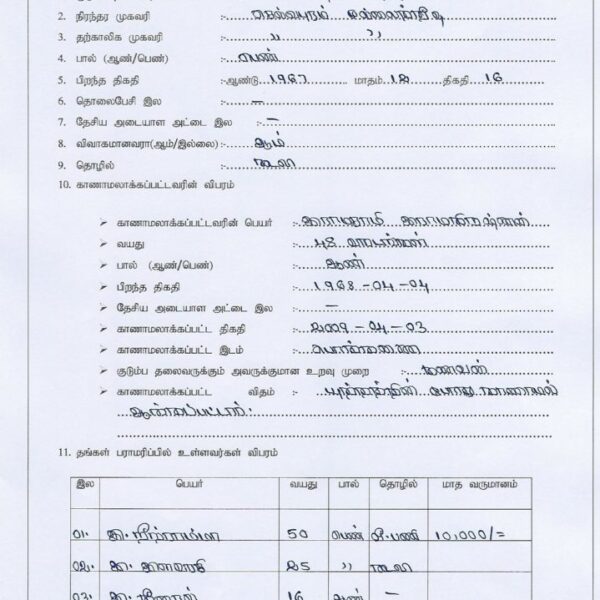 2. நிரந்தர முகவரி :- செல்வபுரம்
3. தற்காலிக முகவரி :- ,, ,,
4. பால் (ஆண்/பெண்) :- பெண்
5. பிறந்த திகதி :-ஆண்டு 1967 மாதம் 12 திகதி 16
6. தொலைபேசி இல :- –
7. தேசிய அடையாள அட்டை இல :- –
8. விவாகமானவரா(ஆம்/இல்லை) :- ஆம்
9. தொழில் :- கூலி
10. காணாமலாக்கப்பட்டவரின் விபரம்
➢ காணாமலாக்கப்பட்டவரின் பெயர் :-
➢ வயது :- 48
➢ பால் (ஆண்/பெண்) :- ஆண்
➢ பிறந்த திகதி :- 1968-04-04
➢ தேசிய அடையாள அட்டை இல :- –
➢ காணாமலாக்கப்பட்ட திகதி :- 2009-04-03
➢ காணாமலாக்கப்பட்ட இடம் :-
➢ குடும்ப தலைவருக்கும் அவருக்குமான உறவு முறை :- கணவன்
➢ காணாமலாக்கப்பட்ட விதம் :- யுத்தத்தின் போது காணாமல்
ஆக்கப்பட்டார்.
11. தங்கள் பராமரிப்பில் உள்ளவர்கள் விபரம்
இல பெயர் வயது பால் தொழில் மாத வருமானம்
01. 50 பெண் வீ.பணி 10,000/=
02. 25 ,, கூலி
03. 16 ஆண் –